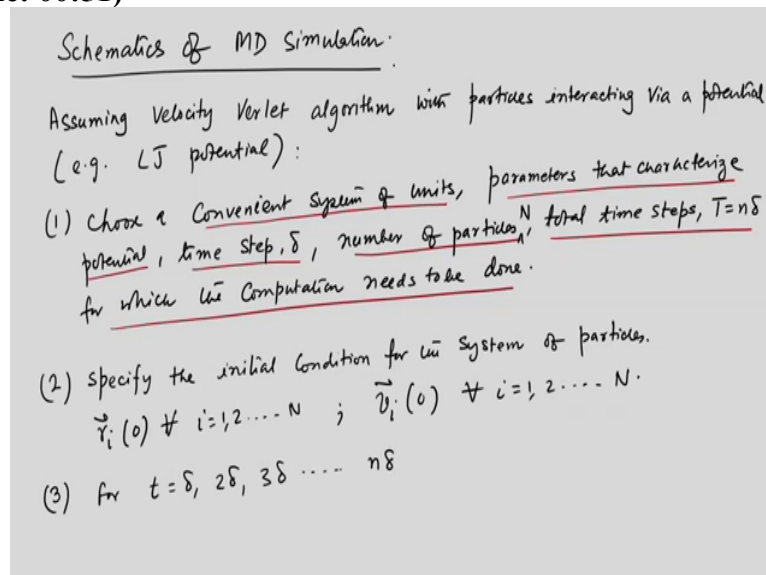 Schematics of MD Simulation.
Assuming Velocity Verlet algorithm with particles interacting via a potential
(e.g. LJ potential):
(1) Choose a Convenient System of units, parameters that characterize
potential, time step, δ, number of particles, N total time steps, T=nδ
for which the Computation needs to be done.
(2) Specify the initial Condition for the System of particles.
r⃗ᵢ(0) ∀ i=1,2....N ; v⃗ᵢ(0) ∀ i=1, 2.... N.
(3) for t=δ, 2δ, 3δ ..... nδ